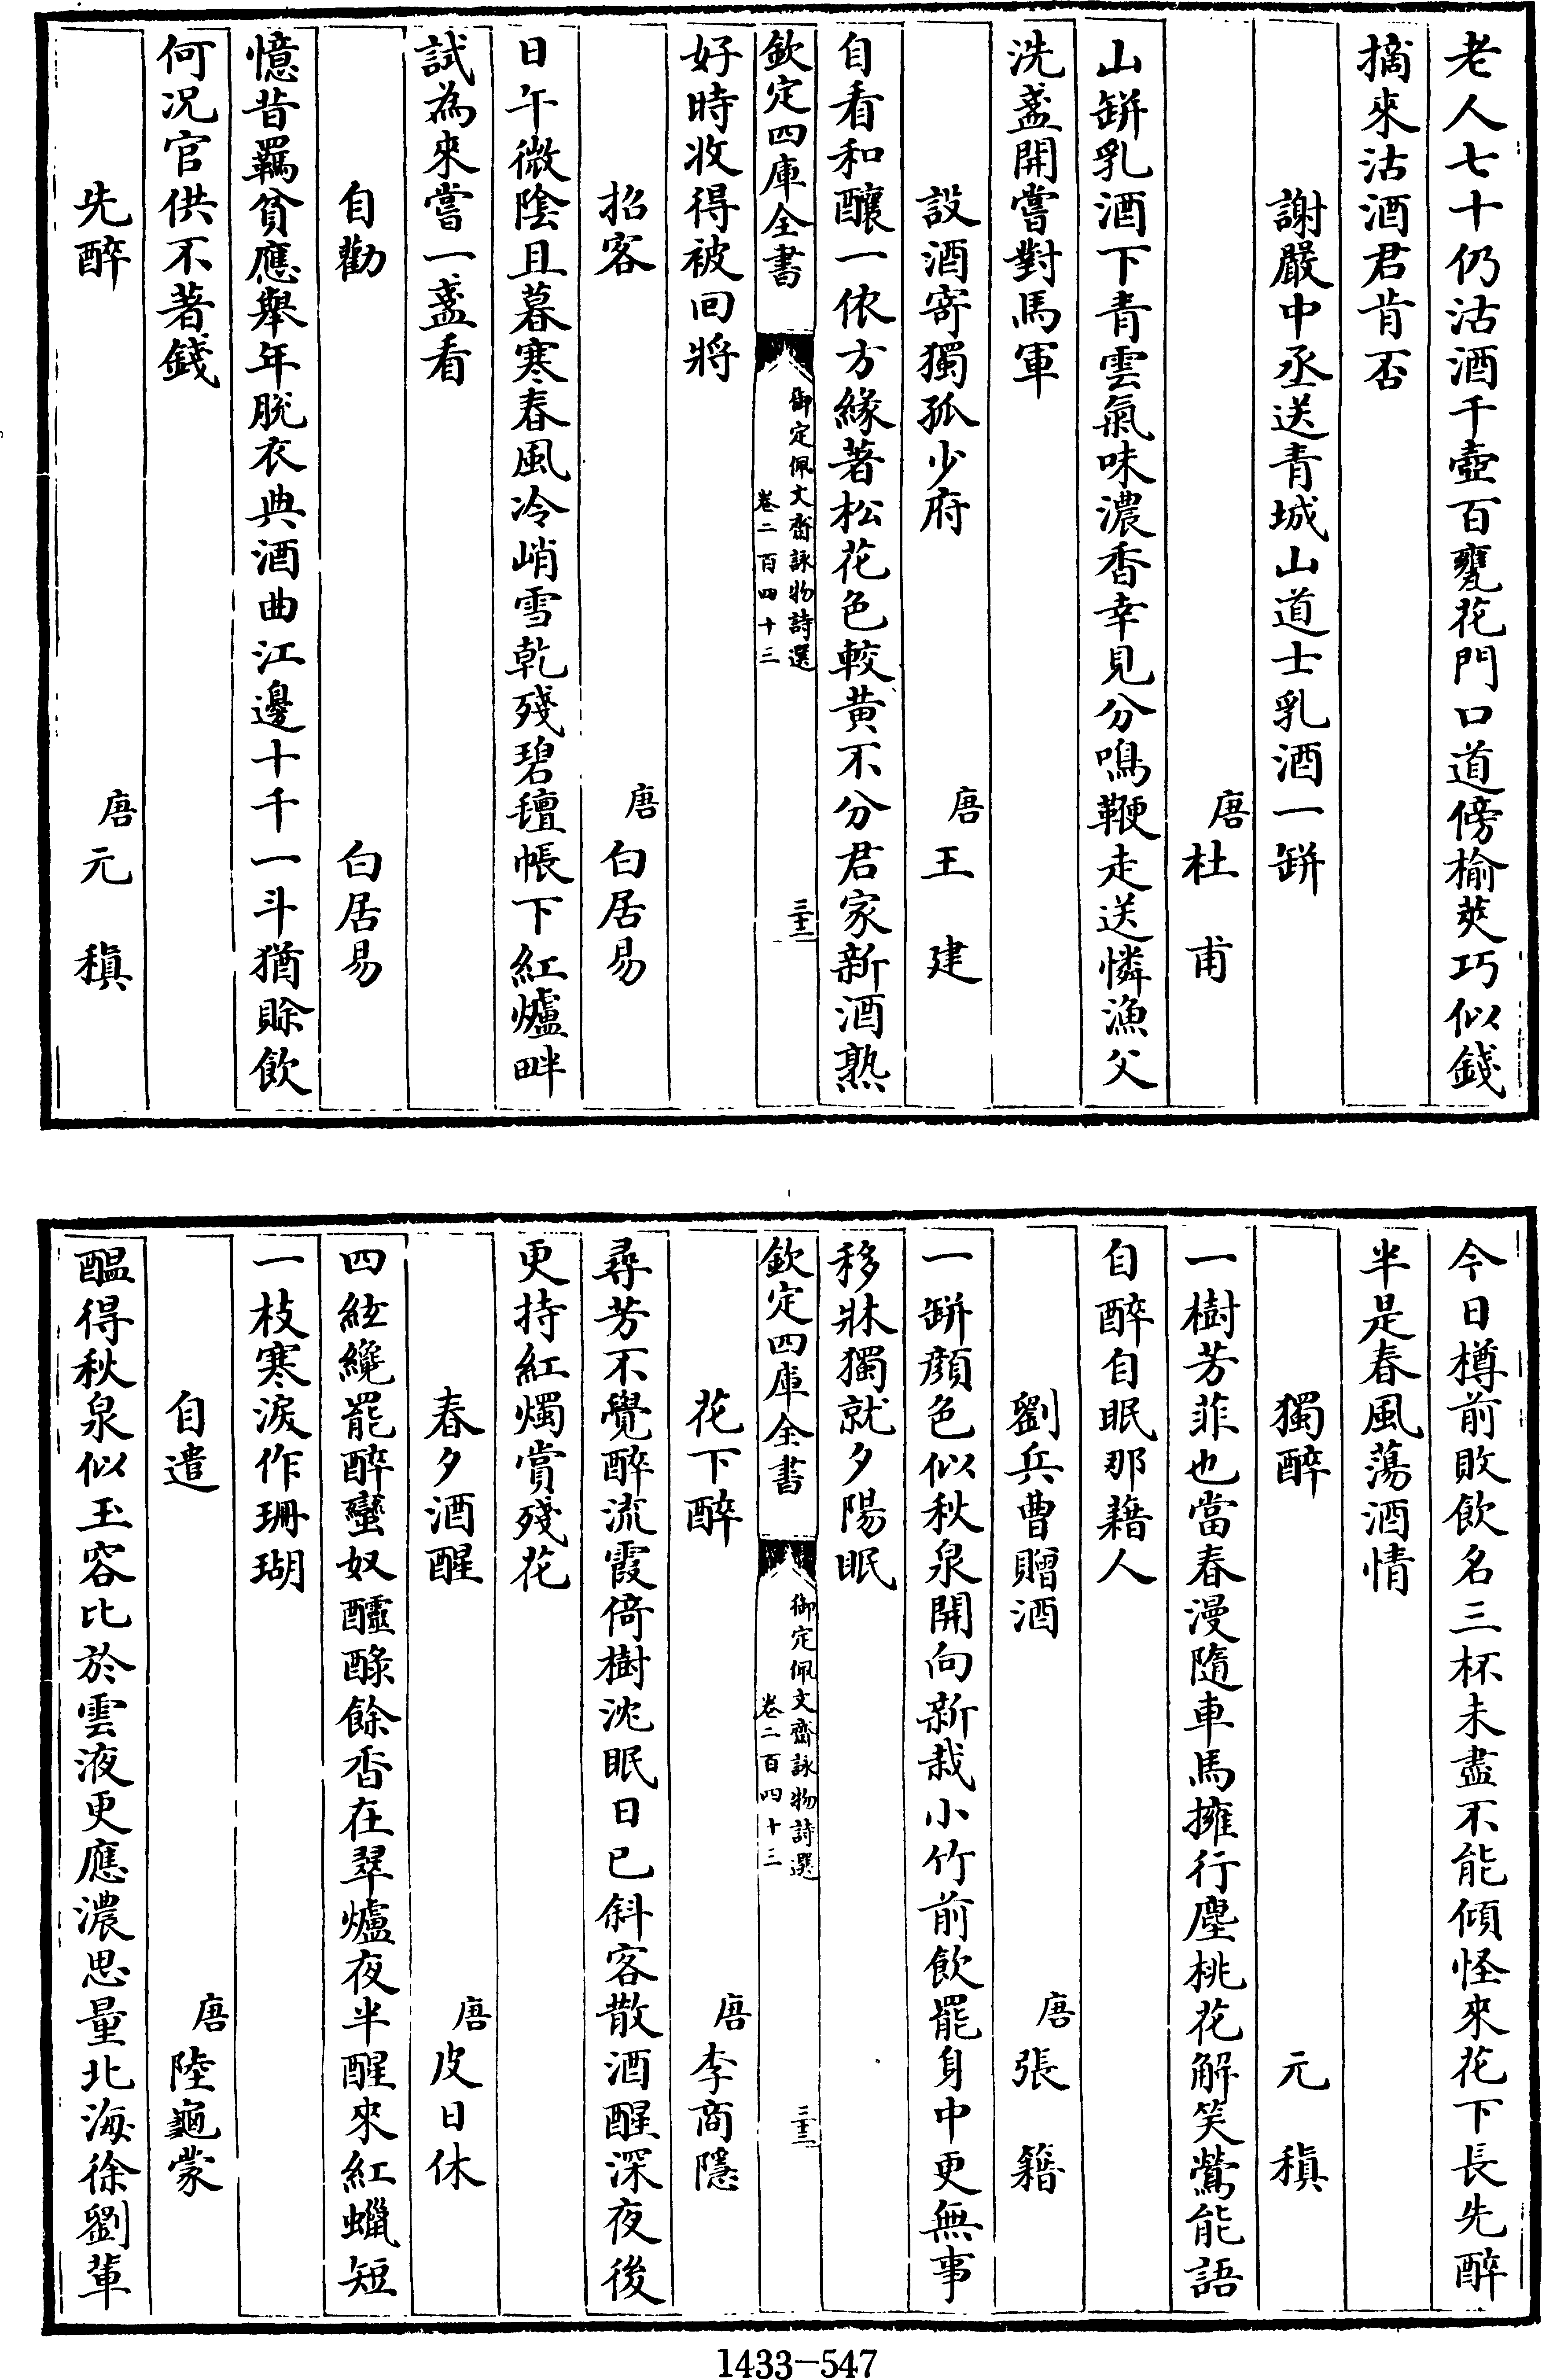 老人七十仍沽酒千壺百甕花門口道傍榆莢巧似錢
摘來沽酒君肯否
謝嚴中丞送青城山道士乳酒一缾
唐杜甫
山缾乳酒下青雲氣味濃香幸見分鳴鞭走送憐漁父
洗盞開嘗對馬軍
設酒寄獨孤少府
唐王建
自看和釀一依方緣著松花色較黄不分君家新酒熟
欽定四庫全書
御定佩文齋詠物詩選
卷二百四十三
三十二
好時收得被回將
招客
唐白居易
日午微陰且暮寒春風冷峭雪乾殘碧氊帳下紅爐畔
試為來嘗一盞看
自勸
白居易
憶昔羈貧應舉年脫衣典酒曲江邊十千一斗猶賖飲
何况官供不著錢
先醉
唐元稹
今日樽前敗飲名三杯未盡不能傾怪來花下長先醉
半是春風蕩酒情
獨醉
元稹
一樹芳菲也當春漫隨車馬擁行塵桃花解笑鶯能語
自醉自眠那藉人
劉兵曹贈酒
唐張籍
一缾顔色似秋泉開向新栽小竹前飲罷身中更無事
移牀獨就夕陽眠
欽定四庫全書
御定佩文齋詠物詩選
卷二百四十三
三十三
花下醉
唐李商隱
尋芳不覺醉流霞倚樹沈眠日已斜客散酒醒深夜後
更持紅燭賞殘花
春夕酒醒
唐皮日休
四絃纔罷醉蠻奴醽醁餘香在翠爐夜半醒來紅蠟短
一枝寒淚作珊瑚
自遣
唐陸龜蒙
醖得秋泉似玉容比於雲液更應濃思量北海徐劉輩
1433-547